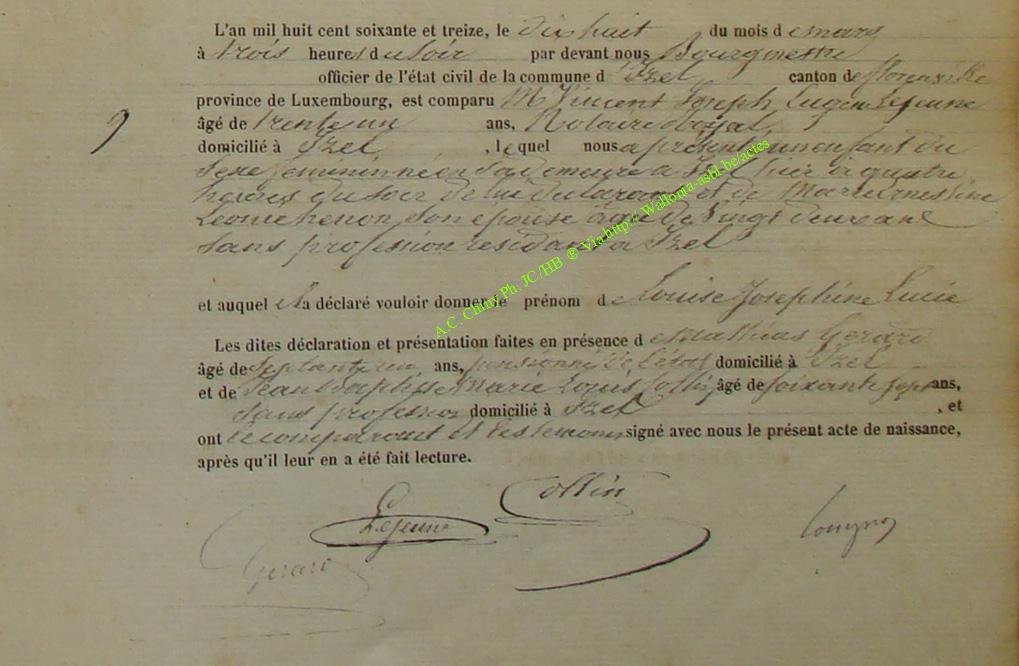 L'an mil huit cent soixante et treize, le dix huit du mois de mars
à trois heures du soir par devant nous Bourgmestre
officier de l'état civil de la commune d'Izel, canton de Florenville
province de Luxembourg, est comparu M Vincent Joseph Eugène Lejeune
9
âgé de trente un ans, Notaire royal,
domicilié à Izel, lequel nous a présenté un enfant du
sexe féminin né en sa demeure à Izel hier à quatre
heures du soir de lui déclarant et de Marie Ernestine
Léonie henon son épouse agée de vingt deux ans
sans profession résidant à Izel
et auquel il a déclaré vouloir donner le prénom de Louise Joséphine Lucie
Les dites déclaration et présentation faites en présence de Mathias Gerard
âgé de septante un ans, pensionné de l'état domicilié à Izel
et de Jean Marie Louis Collin, âgé de soixante sept ans,
sans profession domicilié à Izel, et
ont le comparant et les témoins signé avec nous le présent acte de naissance,
après qu'il leur en a été fait lecture.
Collin
Lejeune
Gerard
A.C. Chiny Ph. JC/HB ® Via http://Wallonia-asbl.be/actes